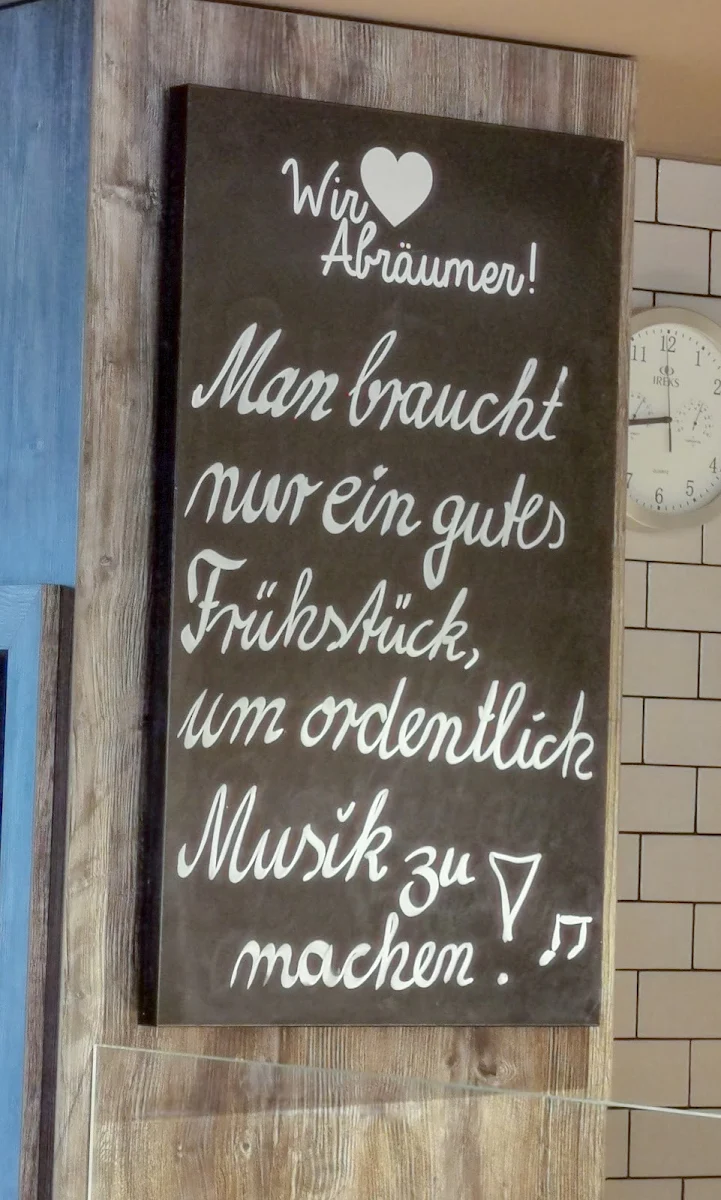 Wir ♥
Abräumer!
Man braucht
nur ein gutes
Frühstück,
um ordentlich
Musik zu
machen! ♫
11 12 1
2
IREKS
4
7 6 5